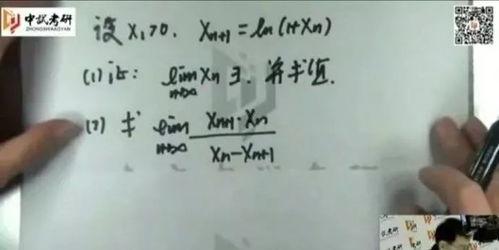 中试考研
ZHONGSHIKAOYAN
设 X₁>0. Xn+1 = ln(1+Xn)
(1) 证: lim n→∞ Xn ∃. 并求值.
(2) 求 lim n→∞ Xn+1·Xn / Xn−Xn+1